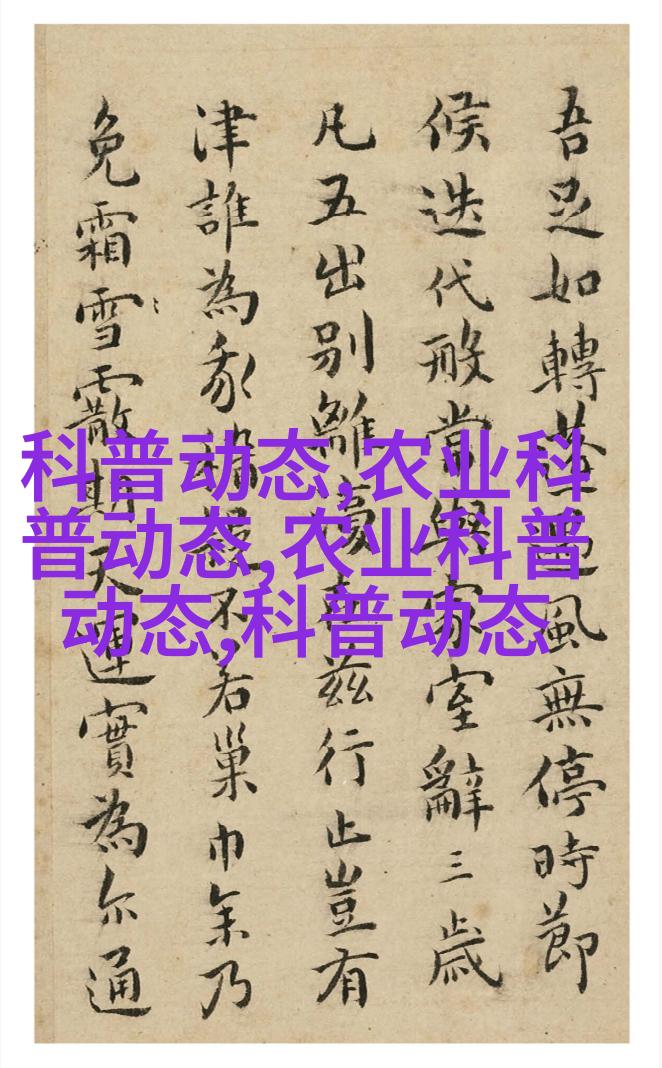 吾足如轉蓬逐風無停時節
候迭代般常與家室辭三歲
凡五出別離
行止豈有
津誰為
不若巢巾年乃
免霜雪霰
期天運實為尔通
科普动态,农业科
普动态,农业科普
动态,科普动态